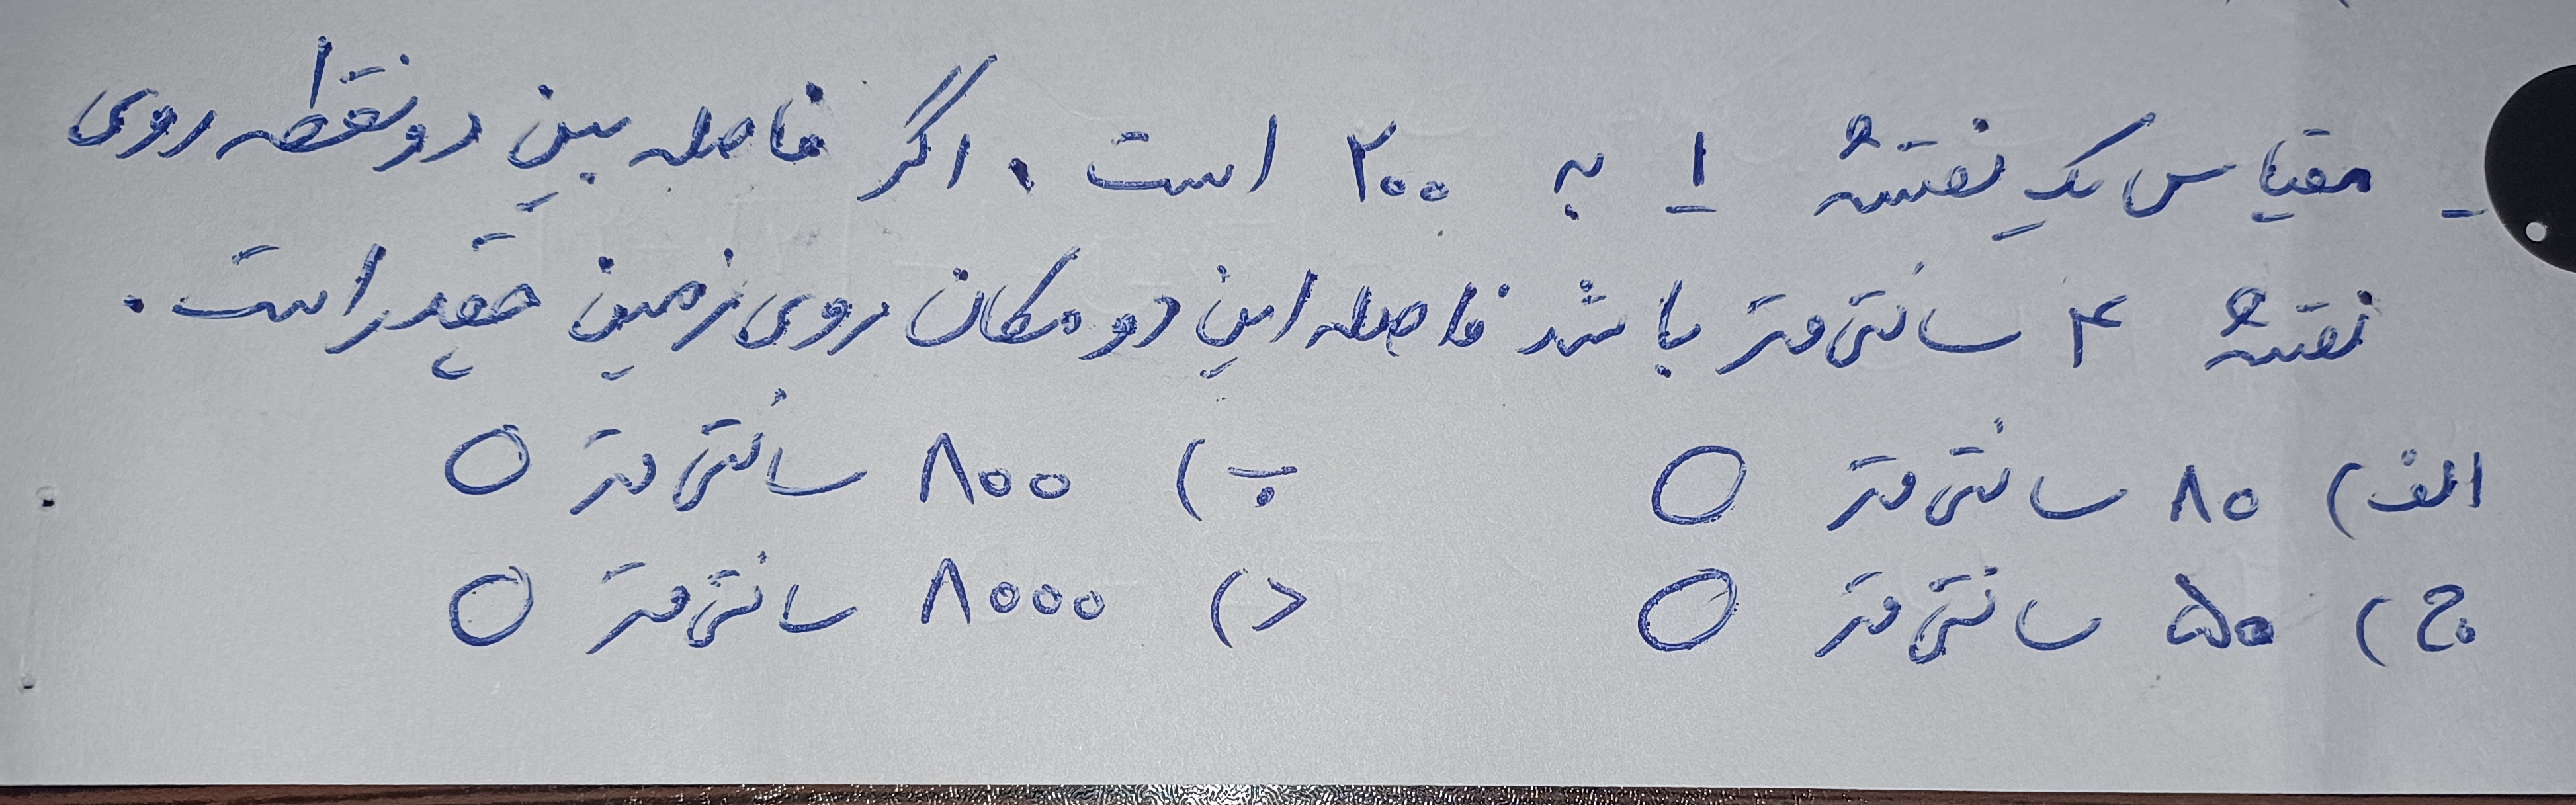 - مقیاس یک نقشه ۱ به ۲۰۰ است. اگر فاصله بین دو نقطه روی
نقشه ۴ سانتی متر باشد فاصله این دو مکان روی زمین چقدر است.
الف) ۸۰ سانتی متر ○ ب) ۸۰۰ سانتی متر ○
ج) ۵۰ سانتی متر ○ د) ۸۰۰۰ سانتی متر ○